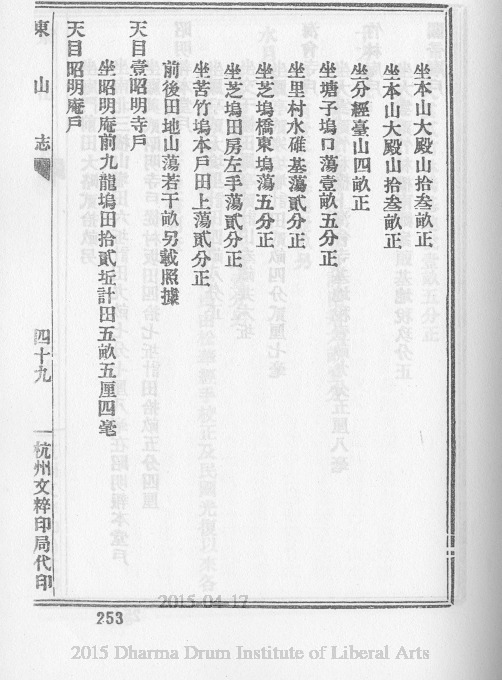 坐本山大殿山拾叁畝正
坐本山大殿山拾叁畝正
坐分經臺山四畝正
坐塘子塢口蕩壹畝五分正
坐里村水碓基蕩貳分正
坐芝塢橋東塢蕩五分正
坐芝塢田房左手蕩貳分正
坐苦竹塢本戶田上蕩貳分正
前後田地山蕩若干畝另載照據
天目壹昭明寺戶
坐昭明庵前九龍塢田拾貳坵計田五畝五厘四毫
天目昭明庵戶
東山志
四十九
杭州文粹印局代印
253
2015-04-17
2015 Dharma Drum Institute of Liberal Arts